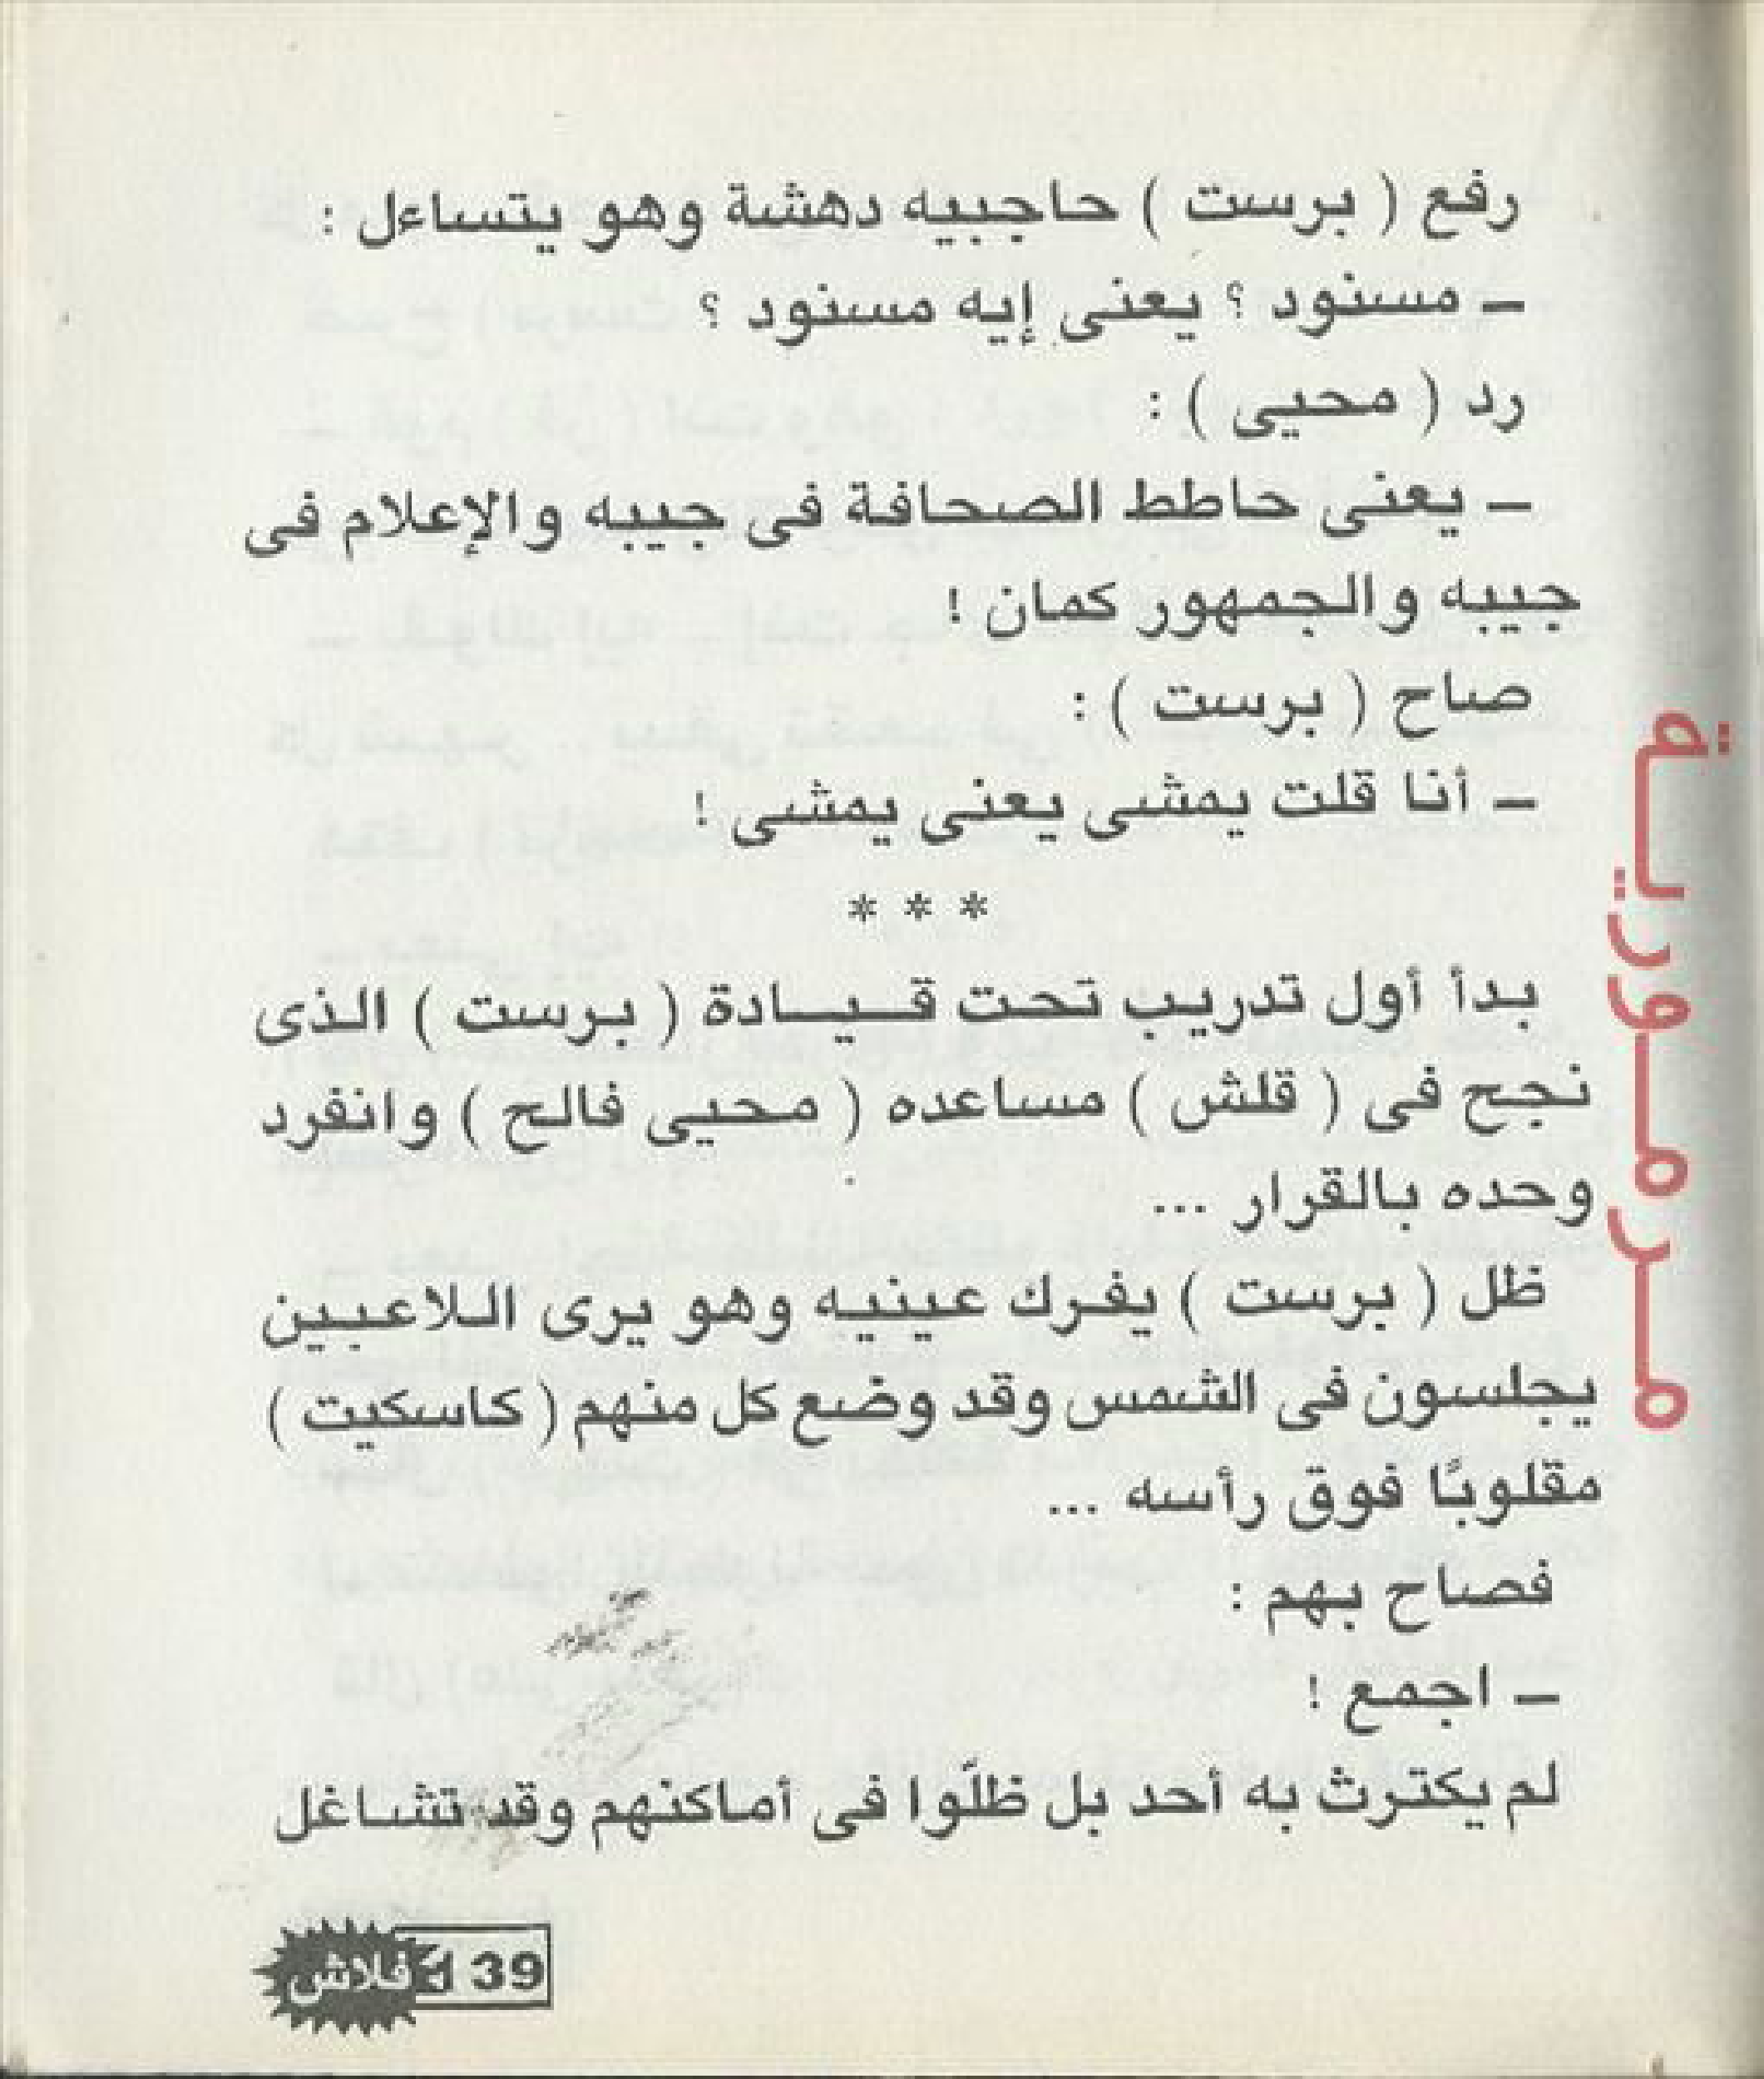 رفع ( برست ) حاجبيه دهشة وهو يتساءل :
– مسنود ؟ يعنى إيه مسنود ؟
رد ( محيى ) :
– يعنى حاطط الصحافة فى جيبه والإعلام فى
جيبه والجمهور كمان !
صاح ( برست ) :
– أنا قلت يمشى يعنى يمشى !
* * *
بدأ أول تدريب تحت قـيـــادة ( برست ) الذى
نجح فى ( قلش ) مساعده ( محيى فالح ) وانفرد
وحده بالقرار ...
ظل ( برست ) يفرك عينيه وهو يرى اللاعبين
يجلسون فى الشمس وقد وضع كل منهم ( كاسكيت )
مقلوبًا فوق رأسه ...
فصاح بهم :
– اجمع !
لم يكترث به أحد بل ظلّوا فى أماكنهم وقد تشاغل
39 فلاش
مــرمــوريــة